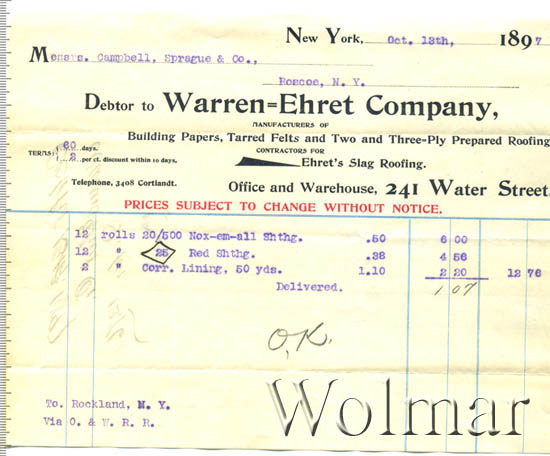 New York, Oct. 13th, 1897
Messrs. Campbell, Sprague & Co.,
Roscoe, N. Y.
Debtor to Warren=Ehret Company,
MANUFACTURERS OF
Building Papers, Tarred Felts and Two and Three-Ply Prepared Roofing
CONTRACTORS FOR
Ehret's Slag Roofing.
TERMS: 60 days.
2 per ct. discount within 10 days.
Telephone, 3408 Cortlandt.
Office and Warehouse, 241 Water Street
PRICES SUBJECT TO CHANGE WITHOUT NOTICE.
12 rolls 20/500 Nox-em-all Shthg. .50 6 00
12 " 25 Red Shthg. .38 4 56
2 " Corr. Lining, 50 yds. 1.10 2 20 12 76
Delivered. 1 07
O.K.
To. Rockland, N. Y.
Via O. & W. R. R.
Wolmar